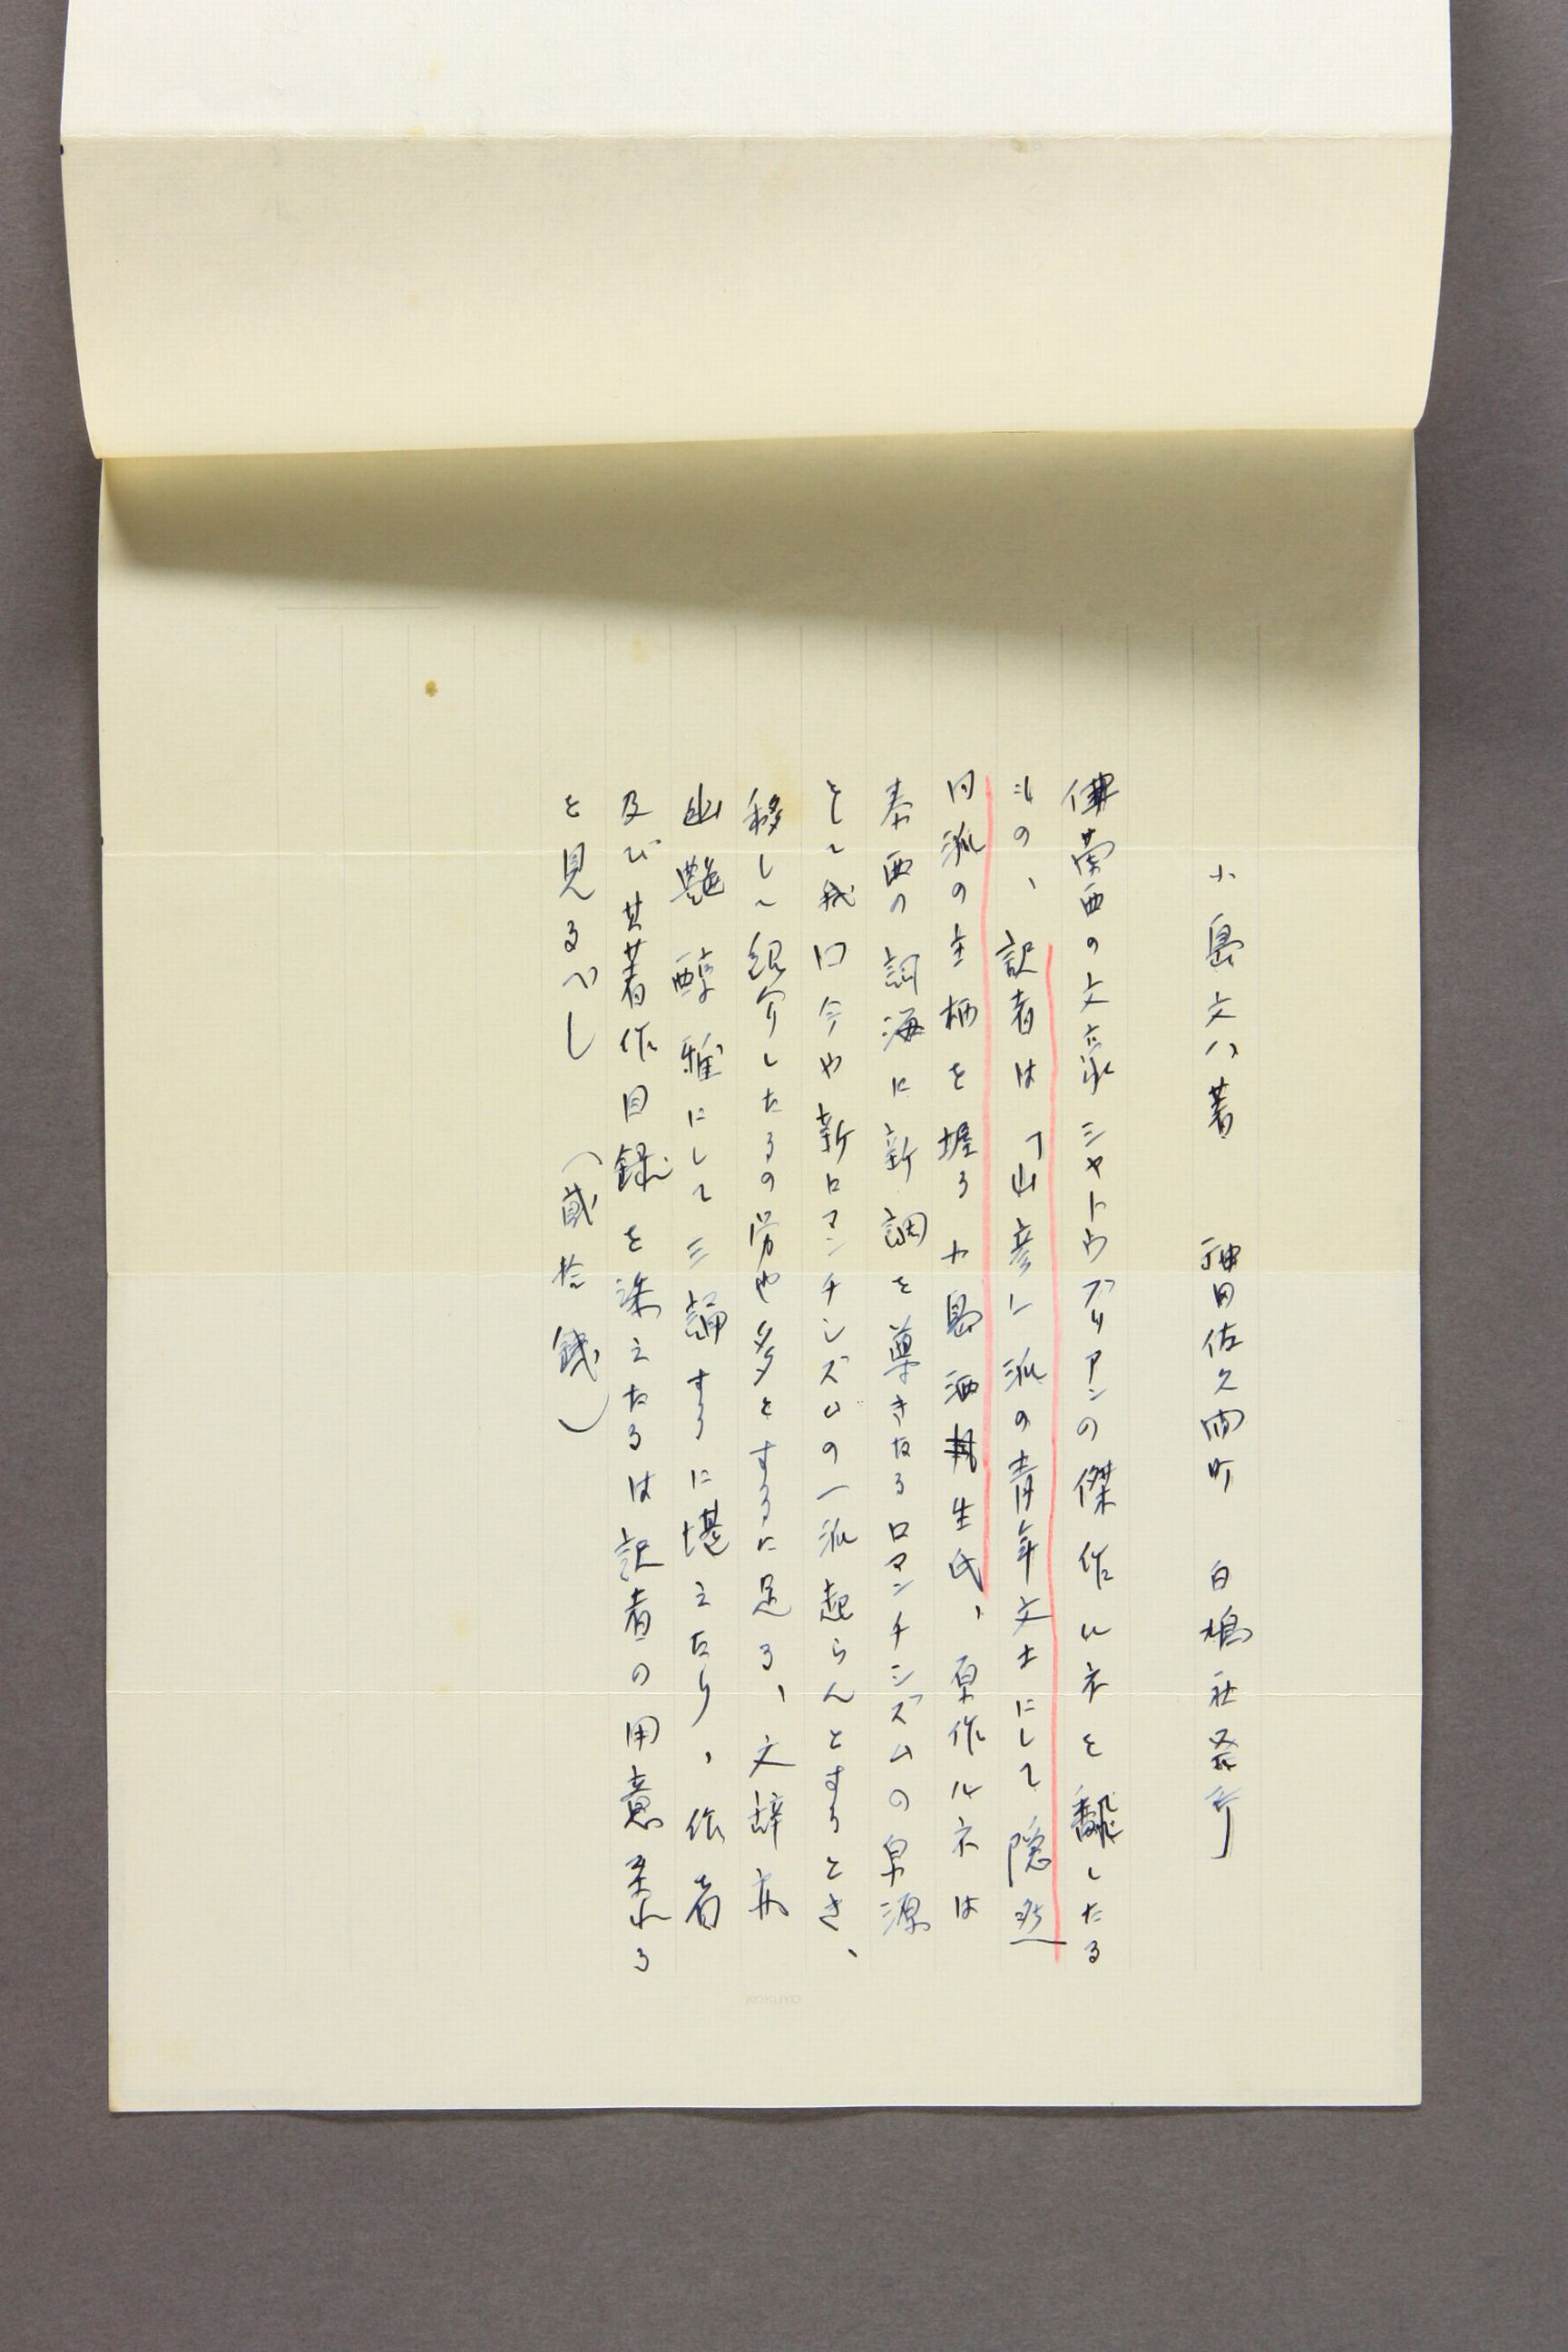 小島文八著　神田佐久間町　白鳩社発行
佛蘭西の文豪シャトウブリアンの傑作ルネを飜したる
もの、訳者は「山彦」派の青年文士にして隠然
同派の主柄を握る小島洒風生氏、原作ルネは
泰西の詞海に新調を導きたるロマンチシズムの泉源
として我国今や新ロマンチシズムの一派起らんとするとき、
移して紹介したるの労や多とするに足る、文辞亦
幽艶醇雅にして三誦するに堪えたり、作者
及び其著作目録を添えたるは訳者の用意至れる
を見るべし　（貳拾銭）
KOKUYO